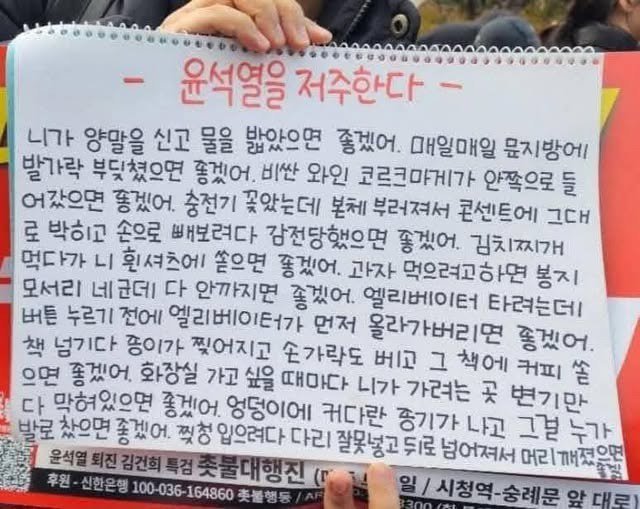 - 윤석열을 저주한다 -
니가 양말을 신고 물을 밟았으면 좋겠어. 매일매일 문지방에
발가락 부딪쳤으면 좋겠어. 비싼 와인 코르크마게가 안쪽으로 들
어갔으면 좋겠어. 충전기 꽂았는데 본체 부러져서 콘센트에 그대
로 박히고 손으로 빼보려다 감전당했으면 좋겠어. 김치찌개
먹다가 니 흰셔츠에 쏟으면 좋겠어. 과자 먹으려고하면 봉지
모서리 네군데 다 안까지면 좋겠어. 엘리베이터 타려는데
버튼 누르기 전에 엘리베이터가 먼저 올라가버리면 좋겠어.
책 넘기다 종이가 찢어지고 손가락도 베고 그 책에 커피 쏟
으면 좋겠어. 화장실 가고 싶을 때마다 니가 가려는 곳 변기만
다 막혀있으면 좋겠어. 엉덩이에 커다란 종기가 나고 그걸 누가
발로 찼으면 좋겠어. 찢청 입으려다 다리 잘못넣고 뒤로 넘어져서 머리 깨졌으면
좋겠어
윤석열 퇴진 김건희 특검 촛불대행진 / 시청역~숭례문 앞 대로)
후원 - 신한은행 100-036-164860 촛불행동 /